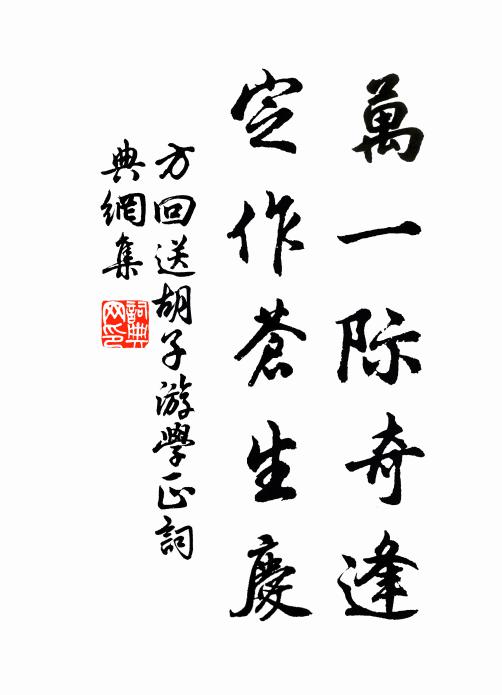 萬一际奇逢
定作蒼生慶
方回送胡子游學正詞
典網集
詞典
网印